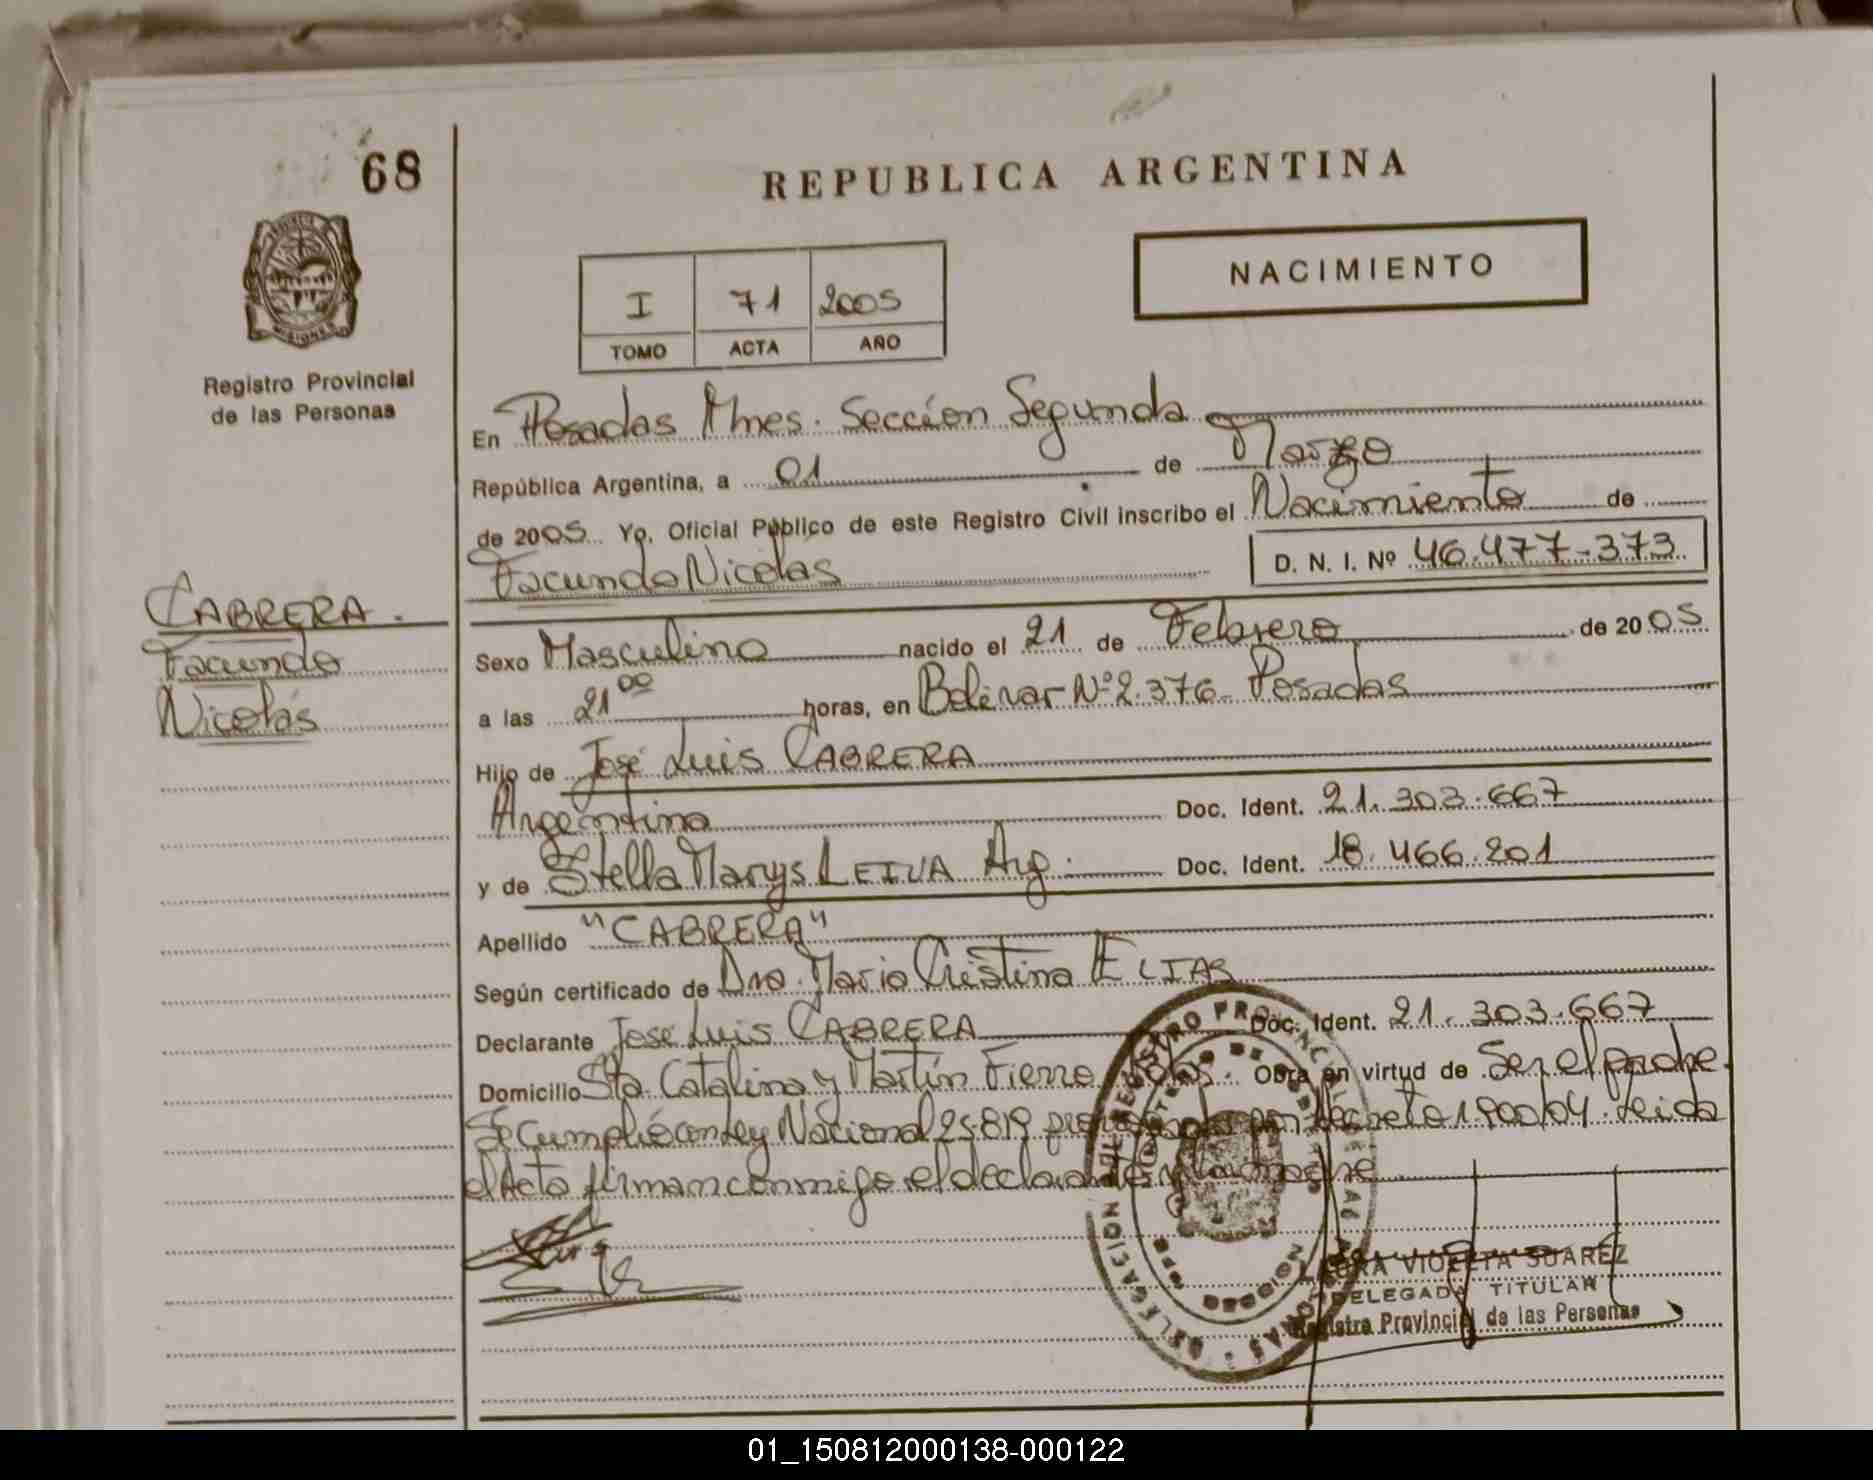 68
REPUBLICA ARGENTINA
NACIMIENTO
I 71 2005
TOMO ACTA AÑO
MISIONES
Registro Provincial
de las Personas
En Posadas Mnes. Sección Segunda
República Argentina, a 01 de Marzo
de 2005 Yo, Oficial Público de este Registro Civil inscribo el Nacimiento de
Facundo Nicolas D. N. I. Nº 46.477-373
CABRERA.
Facundo
Nicolás
Sexo Masculino nacido el 21 de Febrero de 2005
a las 21 00 horas, en Bolivar Nº 2.376- Posadas
Hijo de José Luis CABRERA
Argentino Doc. Ident. 21.303.667
y de Stella Marys LEIVA Arg. Doc. Ident. 18.466.201
Apellido "CABRERA"
Según certificado de Dra. Maria Cristina ELIAS
Declarante José Luis CABRERA Doc. Ident. 21.303.667
Domicilio Sta. Catalina y Martín Fierro Obra en virtud de Ser el padre.
Se cumplió con Ley Nacional 25.819 por Decreto 1.900/04. Leida
el Acta firman conmigo el declarante y la madre
VIOLETA SUAREZ
DELEGADA TITULAR
Registro Provincial de las Personas
01_150812000138-000122